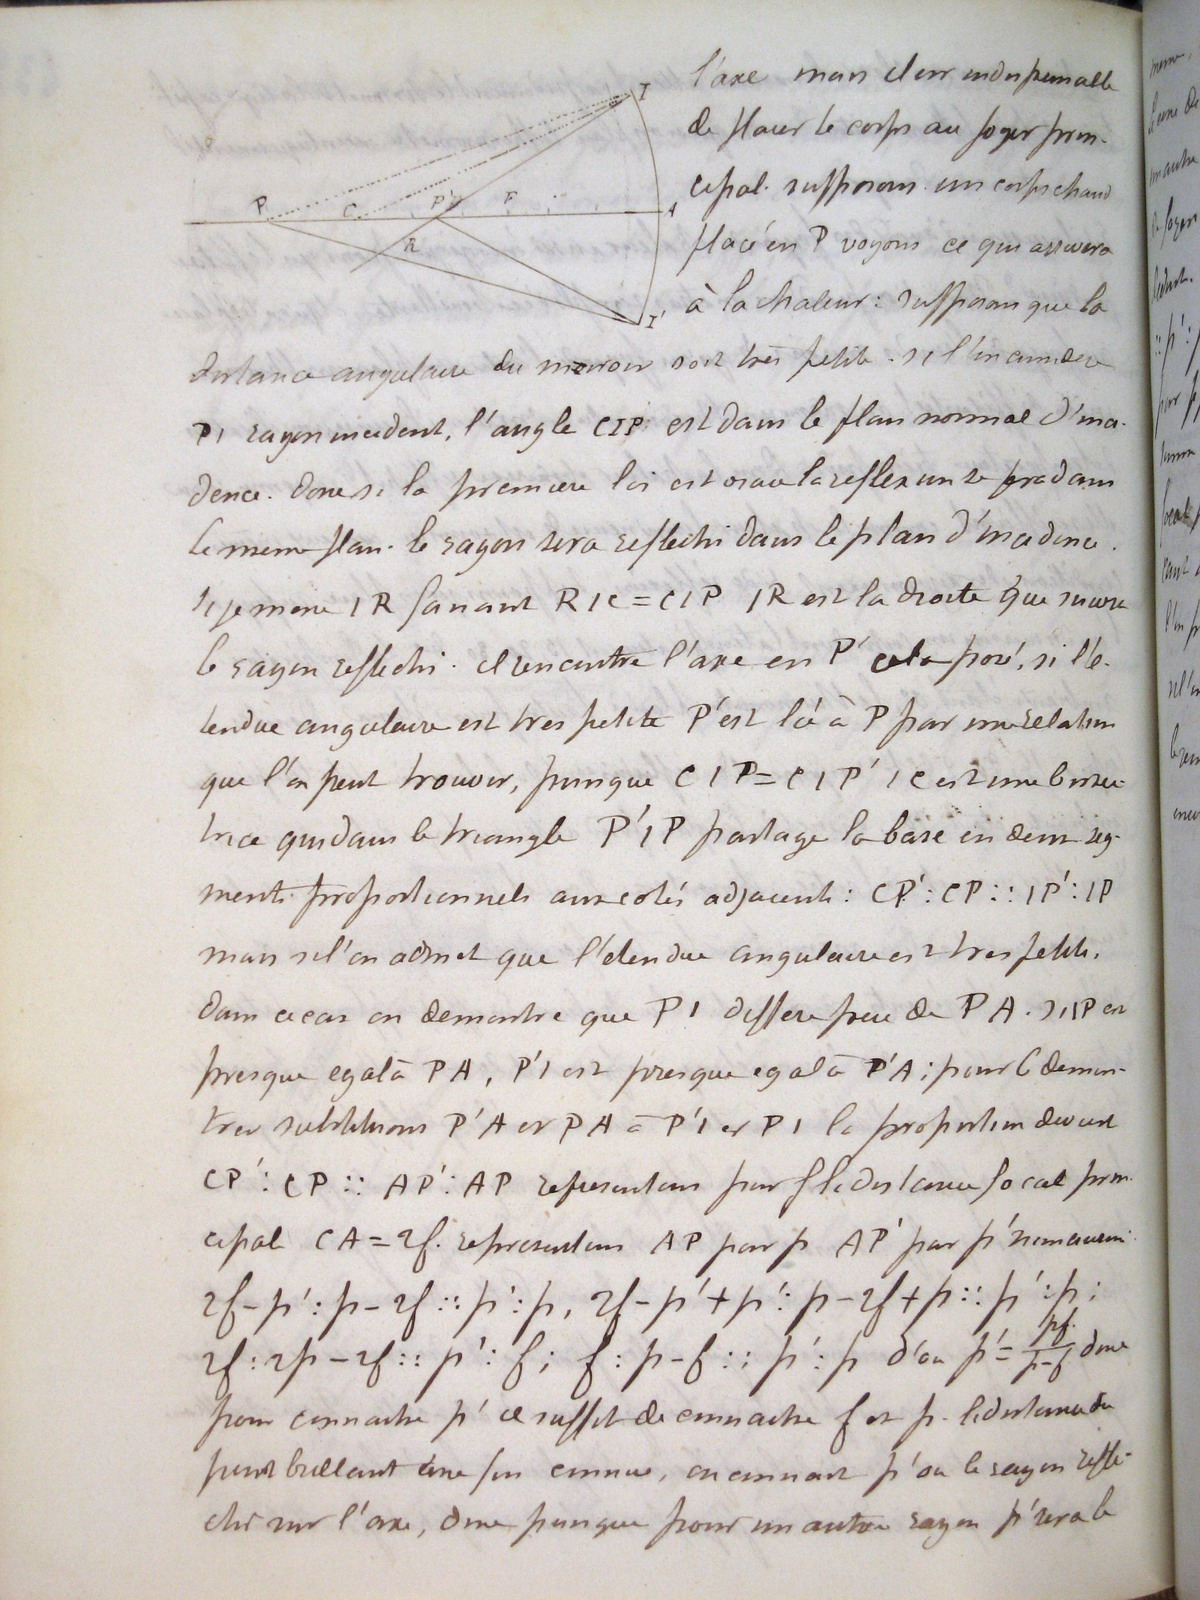 I
P C P' F A
R
I'
l'axe mais il est indispensable
de placer le corps au foyer prin-
cipal. supposons un corps chaud
placé en P voyons ce qui arrivera
à la chaleur: supposons que la
distance angulaire du miroir soit très petite. si l'on considere
PI rayon incident, l'angle CIP est dans le plan normal d'inci-
dence. donc si la premiere loi est vraie la reflexion se fera dans
le meme plan. le rayon sera reflechi dans le plan d'incidence.
si je mene IR faisant RIC = CIP IR est la droite que suivra
le rayon reflechi. il rencontre l'axe en P' cela posé, si l'é-
tendue angulaire est tres petite P' est lié à P par une relation
que l'on peut trouver, puisque CIP = CIP' IC est une bissec-
trice qui dans le triangle P'IP partage la base en deux seg-
ments proportionnels aux cotés adjacents: CP' : CP :: IP' : IP
mais si l'on admet que l'étendue angulaire est tres petite,
dans ce cas on demontre que PI differe peu de PA. si IP est
presque egal à PA, P'I est presque egal à P'A; pour le demon-
trer substituons P'A et PA à P'I et PI la proportion devient
CP' : CP :: AP' : AP representons par f la distance focale prin-
cipale CA = 2f. representons AP par p AP' par p'
2f - p' : p - 2f :: p' : p, 2f - p' + p' : p - 2f + p :: p' : p;
2f : 2p - 2f :: p' : f; f : p - f :: p' : p d'ou p' = pf/p-f donc
pour connaitre p' il suffit de connaitre f et p. la distance du
point brillant etant connue, on connait p' ou le rayon refle-
chi sur l'axe, donc puisque pour un autre rayon p' sera le